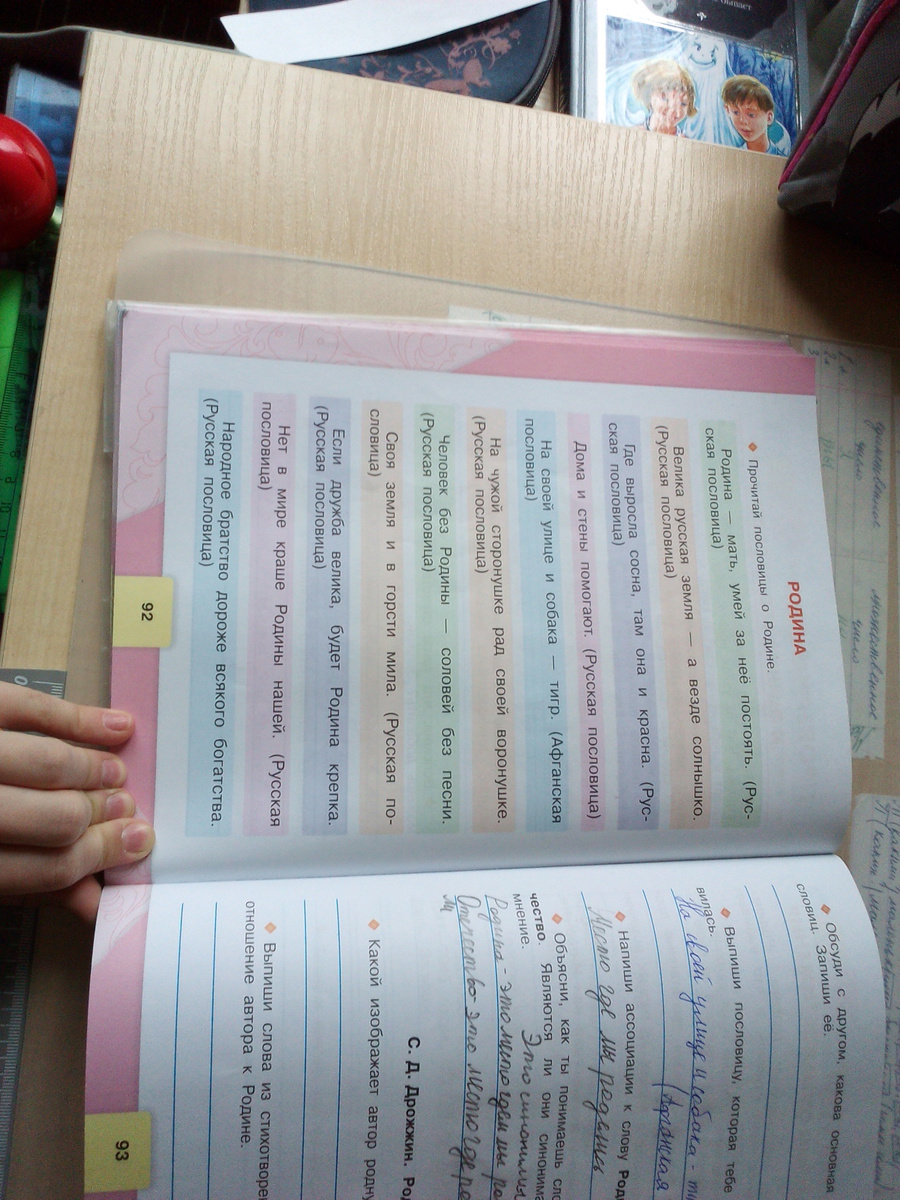 РОДИНА
Прочитай пословицы о Родине.
Родина — мать, умей за неё постоять. (Рус-
ская пословица)
Велика русская земля — а везде солнышко.
(Русская пословица)
Где выросла сосна, там она и красна. (Рус-
ская пословица)
Дома и стены помогают. (Русская пословица)
На своей улице и собака — тигр. (Афганская
пословица)
На чужой сторонушке рад своей воронушке.
(Русская пословица)
Человек без Родины — соловей без песни.
(Русская пословица)
Своя земля и в горсти мила. (Русская по-
словица)
Если дружба велика, будет Родина крепка.
(Русская пословица)
Нет в мире краше Родины нашей. (Русская
пословица)
Народное братство дороже всякого богатства.
(Русская пословица)
92
Обсуди с другом, какова основная
словиц. Запиши её.
Выпиши пословицу, которая тебе
вилась.
На своей улице и собака - ти
(Афганская
Напиши ассоциации к слову Род
Место где мы родились
Объясни, как ты понимаешь сло
чество. Являются ли они синоним
мнение. Это синонимы
Родина - это место где мы ро
Отечество - это место где ро
С. Д. Дрожжин. Род
Какой изображает автор родну
Выпиши слова из стихотворен
отношение автора к Родине.
93